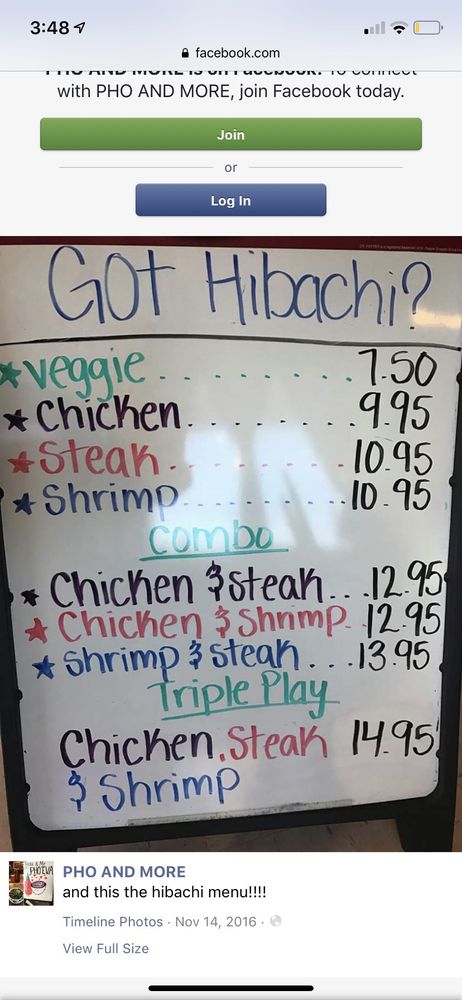 3:48
facebook.com
PHO AND MORE is on Facebook. To connect
with PHO AND MORE, join Facebook today.
Join
or
Log In
GOT Hibachi?
veggie . . . . . . . . 7.50
Chicken. . . . . . . . . 9.95
Steak. . . . . . . . . 10.95
Shrimp. . . . . . . . . 10.95
Combo
Chicken & Steak. . . 12.95
Chicken & Shrimp. . 12.95
Shrimp & Steak. . . 13.95
Triple Play
Chicken, Steak 14.95
& Shrimp
PHO AND MORE
and this the hibachi menu!!!!
Timeline Photos · Nov 14, 2016 ·
View Full Size